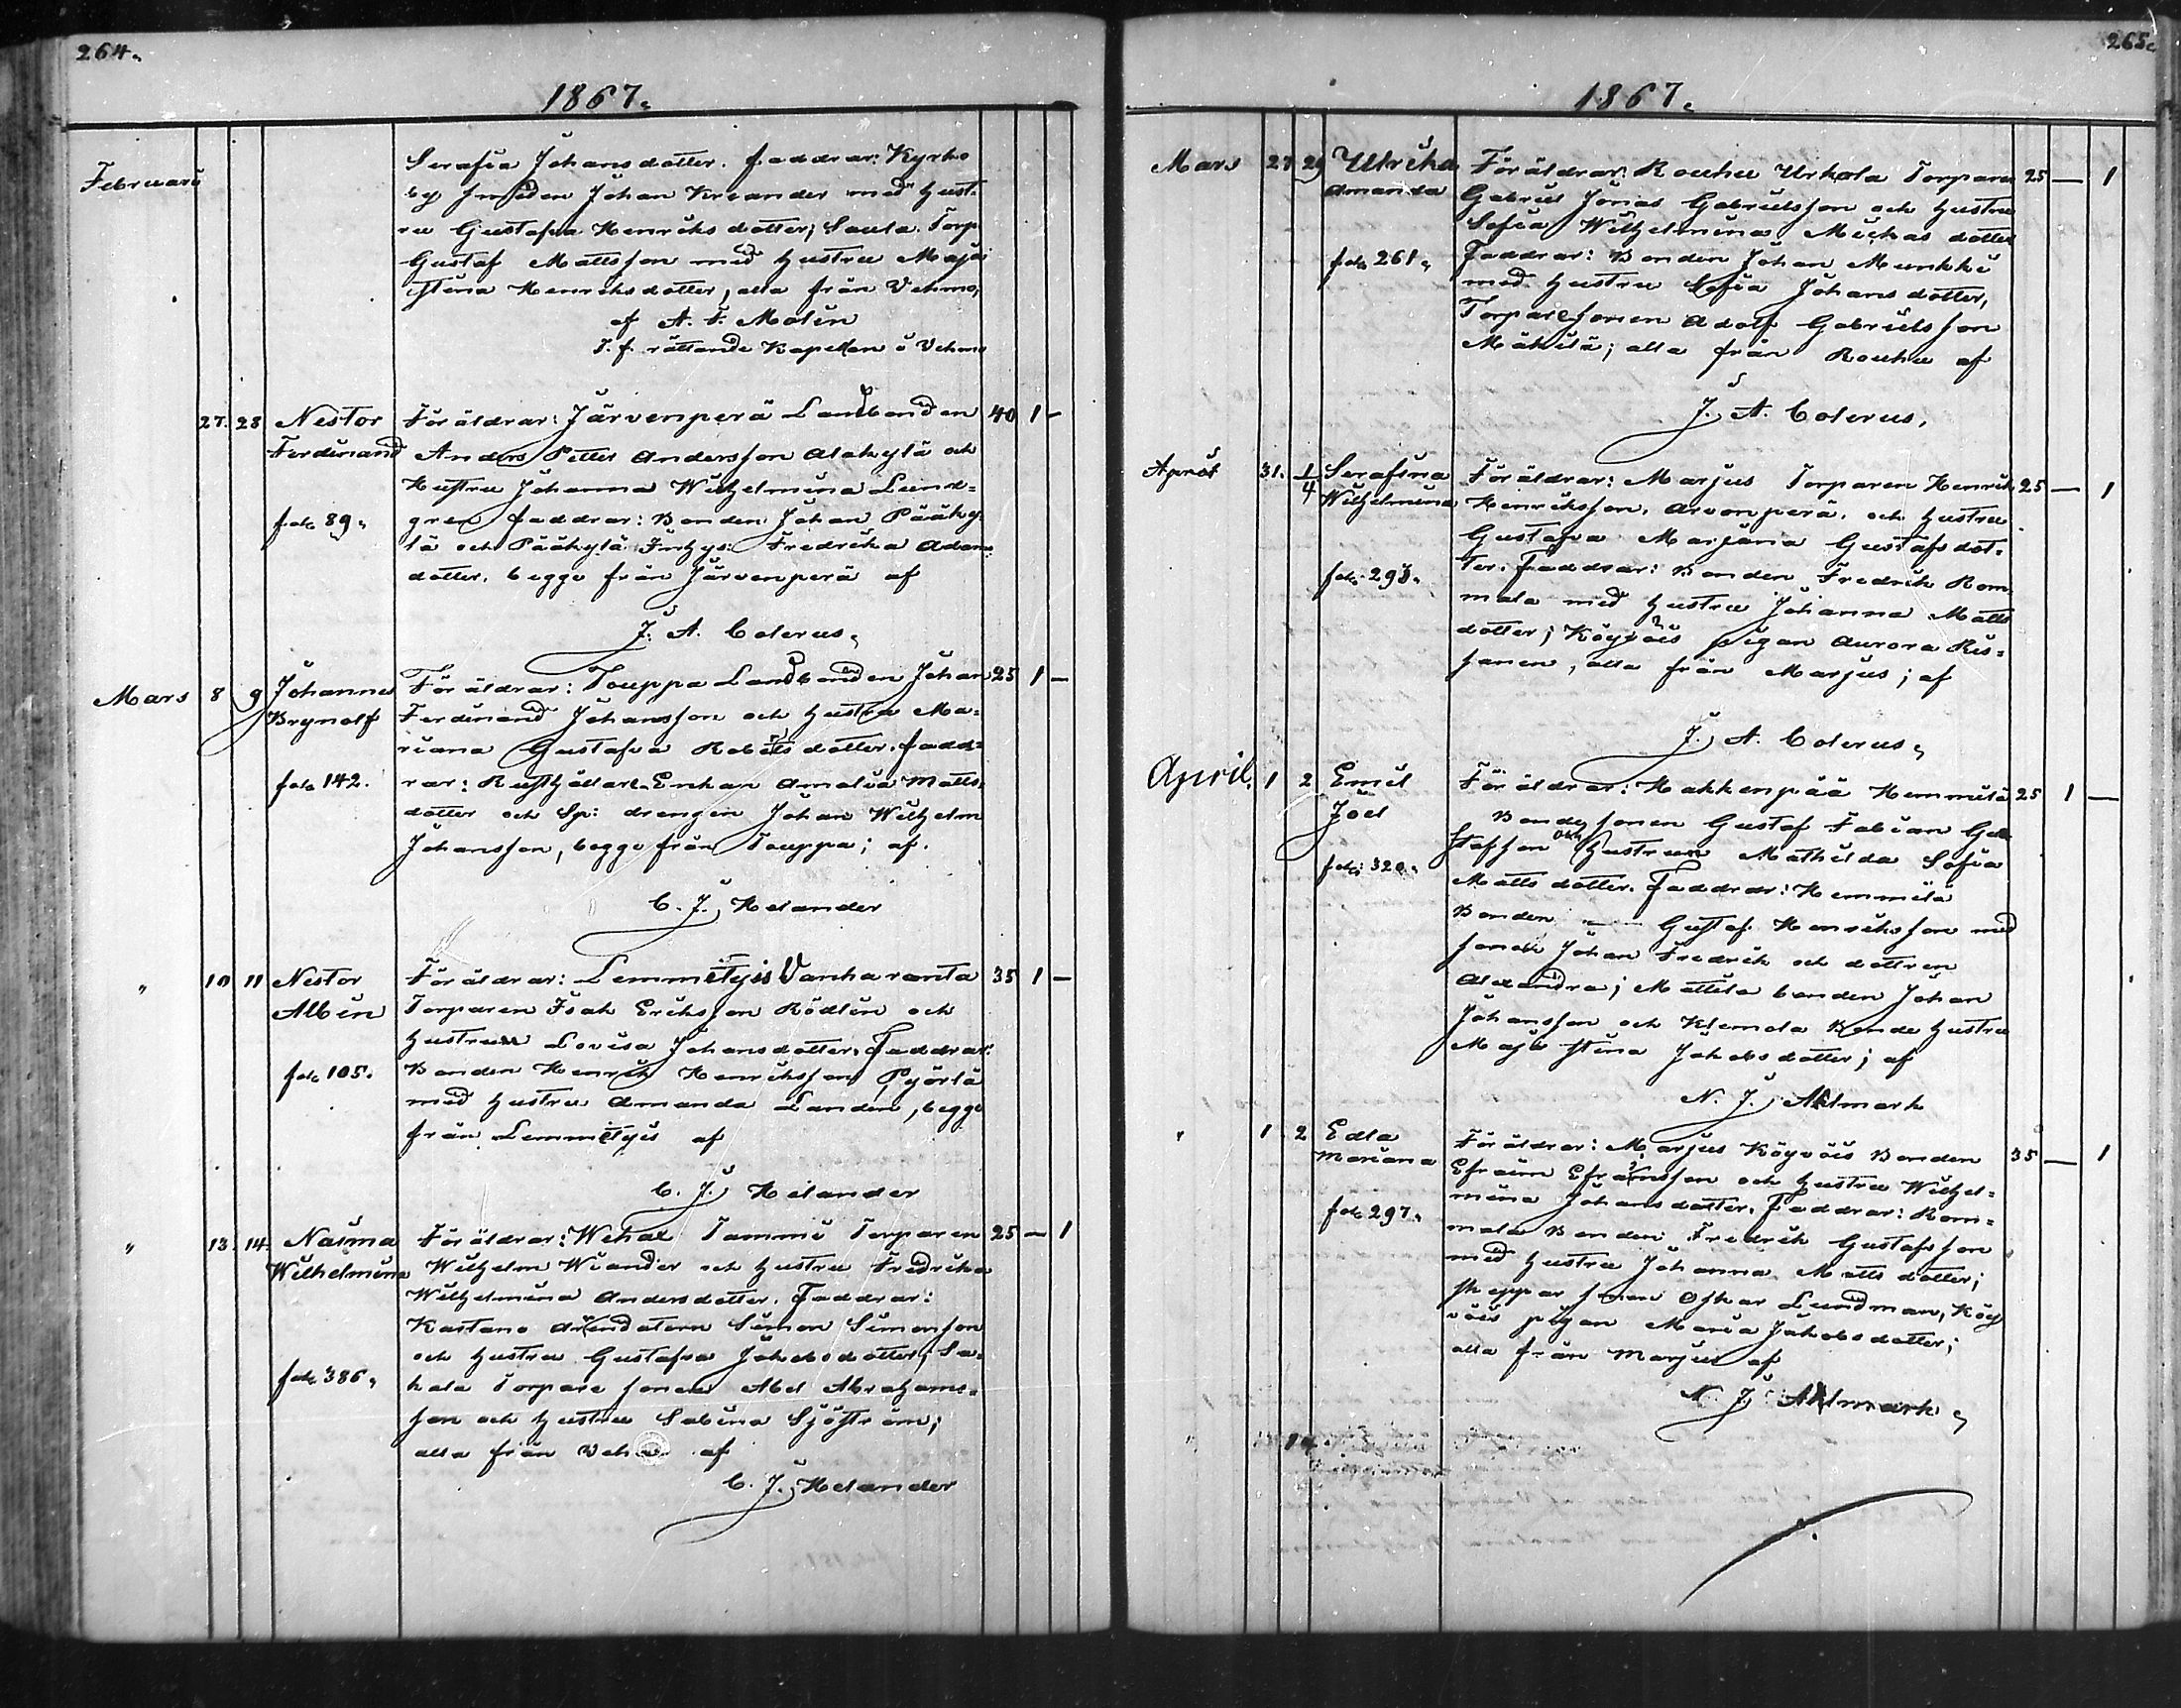 264.
1867.
Februari
Serafia Johansdotter. faddrar: Kyrko
by smeden Johan Kreander med hust-
ru Gustafva Henriksdotter; Saula Torp
Gustaf Mattsson med hustru Maja
Stina Henriksdotter, alla från Vehmo,
af A. F. Molin
T. f. rättande Kapellan i Vehmo
27. 28 Nestor Föräldrar: Järvenperä Landbonden 40 1 -
Ferdinand Anders Petter Andersson Alakylä och
Hustru Johanna Wilhelmina Lund=
fol. 89. gren faddrar: Bonden Johan Pääky-
lä och Pääkylä Inhys: Fredrika Adams
dotter, begge från Järvenperä af
J. A. Colerus.
Mars 8 9 Johannes Föräldrar: Touppa Landbonden Johan 25 1 -
Brynolf Ferdinand Johansson och hustru Ma-
riana Gustafva Robertsdotter. fadd=
fol. 142. rar: Rusthållare Enkan Amalia Matts-
dotter och Sp: drengen Johan Wilhelm
Johansson, begge från Touppa; af.
C. J. Helander
" 10 11 Nestor Föräldrar: Lemmityis Vanharanta 35 1 -
Albin Torparen Isak Eriksson Rödlin och
hustrun Lovisa Johansdotter. Faddrar:
fol. 105. Bonden Henrik Henriksson Pyörlä
med hustru Amanda Landen, begge
från Lemmityis af
C. J. Helander
" 13. 14. Naima Föräldrar: Wehax Tammi Torparen 25 - 1
Wilhelmina Wilhelm Wiander och hustru Fredrika
Wilhelmina Andersdotter. Faddrar:
Kastano Arendatorn Simon Simonson
och hustru Gustafva Jakobsdotter, Sa-
fol. 386. kala Torpare sonen Abel Abrahams-
son och hustru Sabina Sjöström;
alla från af
C. J. Helander
265.
1867.
Mars 27 29 Ulrika Föräldrar: Rouhu Urkola Torparen 25 - 1
Amanda Gabriel Jonas Gabrielsson och hustru
Sofia Wilhelmina Mickas dotter
fol. 261. Faddrar: Bonden Johan Munkki
med hustru Sofia Johansdotter,
Torparesonen Adolf Gabrielsson
Mäkilä; alla från Rouhu af
J. A. Colerus,
April 31. 1/4 Serafina Föräldrar: Marjus Torparen Henrik 25 - 1
Wilhelmina Henriksson. Arvonperä. och hustru
Gustafva Mariana Gustafs dot-
fol. 293. ter. Faddrar: Bonden Fredrik Rom
mala med hustru Johanna Matts
dotter; Köyvöis pigan Aurora Ris=
sanen, alla från Marjus; af
J. A. Colerus,
April. 1 2 Emil Föräldrar: Hakkenpää Hemmilä 25 1 -
Joel Bondesonen Gustaf Fabian Gu
fol. 320. stafson och hustrun Mathilda Sofia
Mattsdotter. Faddrar: Hemmilä
Bonden Gustaf Henriksson med
sonen Johan Fredrik och dottren
Alexandra; Mattila bonden Johan
Johansson och Klemola Bonde hustru
Maja Stina Jakobsdotter; af
N. J. Ahlmark
" 1 2 Edla Föräldrar: Marjus Köyvöis Bonden 35 - 1
Mariana Efraim Efraimsson och hustru Wilhel-
mina Johansdotter. Faddrar: Rom=
fol. 297. mala Bonden Fredrik Gustafsson
med hustru Johanna Mattsdotter;
skeppar sonen Oskar Lundman, Köy
vöis pigan Maria Jakobsdotter;
alla från Marjus af
N. J. Ahlmark.